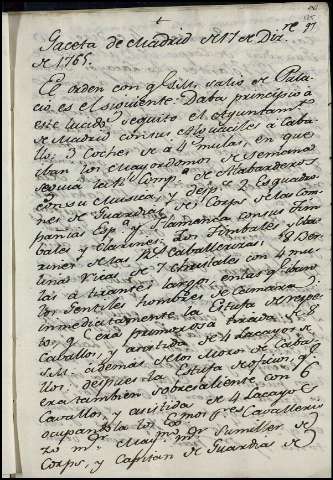 Gaceta de Madrid de 17 de Diz.re
de 1765.
El orden con q.e S.M. salio de Pala-
cio es el siguiente: Daba principio à
este lucido seguito el Ayuntam.to
de Madrid con sus Alguaciles à Caba-
llo: 3 Coches de à 4 mulas, en que
iban los Mayordomos de Semana
seguia la R.l Comp.a de Alabarderos
con su Musica, y desp.s 2 Esquadro-
nes de Guardias de Corps de las Com-
pañias Esp.a y Flamenca con sus Tim-
bales y Clarines: Los Timbales y Cla-
rines de las R.s Caballerizas: 8 Ber-
linas ricas de 7 christales con 4 mu-
las à tirantes largos, en las q.e iban
los Gentiles hombres de Camara:
inmediatamente la Estufa de respe-
to, q.e era primorosa tirada de 8
Caballos, y asistida de 4 Lacayos de
S.M. ademas de los Mozos de Caba-
llos: despues la Estufa de oficios, q.e
era tambien sobresaliente con 6
Cavallos, y asistida de 4 Lacayos
ocupandola los Ex.mos S.res Cavalleri-
zo m.or May.mo m.or Sumiller de
Corps, y Capitan de Guardias de